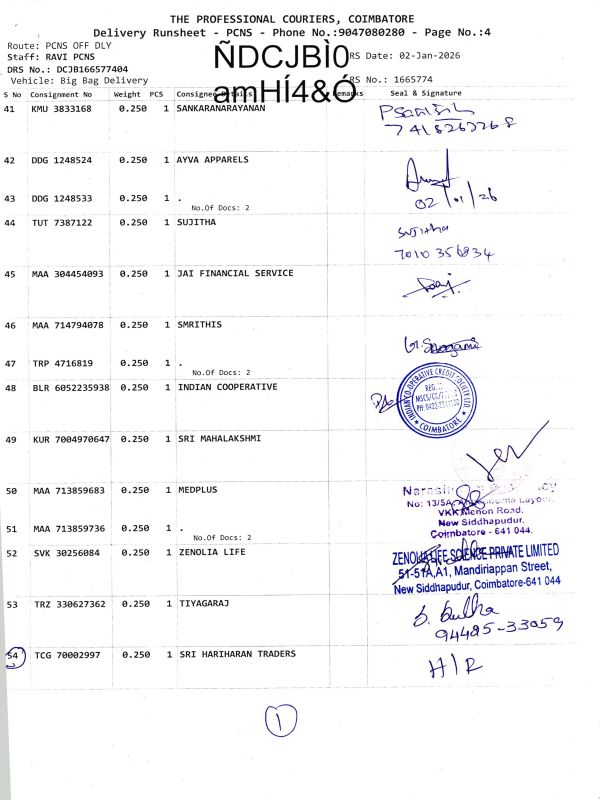 THE PROFESSIONAL COURIERS, COIMBATORE
Delivery Runsheet - PCNS - Phone No.:9047080280 - Page No.:4
Route: PCNS OFF DLY
Staff: RAVI PCNS
ÑDCJBÌ0
RS Date: 02-Jan-2026
DRS No.: DCJB166577404
Vehicle: Big Bag Delivery
amHÍ4&Ó
RS No.: 1665774
S No Consignment No Weight PCS Consignee Details Remarks Seal & Signature
41 KMU 3833168 0.250 1 SANKARANARAYANAN
42 DDG 1248524 0.250 1 AYVA APPARELS
43 DDG 1248533 0.250 1 .
02/01/26
No.Of Docs: 2
44 TUT 7387122 0.250 1 SUJITHA
Sujitha
7010 356834
45 MAA 304454093 0.250 1 JAI FINANCIAL SERVICE
46 MAA 714794078 0.250 1 SMRITHIS
47 TRP 4716819 0.250 1 .
No.Of Docs: 2
48 BLR 6052235938 0.250 1 INDIAN COOPERATIVE
INDIAN CO-OPERATIVE CREDIT SOCIETY LTD
COIMBATORE
49 KUR 7004970647 0.250 1 SRI MAHALAKSHMI
50 MAA 713859683 0.250 1 MEDPLUS
No: 13/5A,
VKK Menon Road,
New Siddhapudur,
Coimbatore - 641 044.
51 MAA 713859736 0.250 1 .
No.Of Docs: 2
52 SVK 30256084 0.250 1 ZENOLIA LIFE
ZENOLIA LIFE SCIENCE PRIVATE LIMITED
51-51A,A1, Mandiriappan Street,
New Siddhapudur, Coimbatore-641 044
53 TRZ 330627362 0.250 1 TIYAGARAJ
94425-33059
54 TCG 70002997 0.250 1 SRI HARIHARAN TRADERS
H/R
1